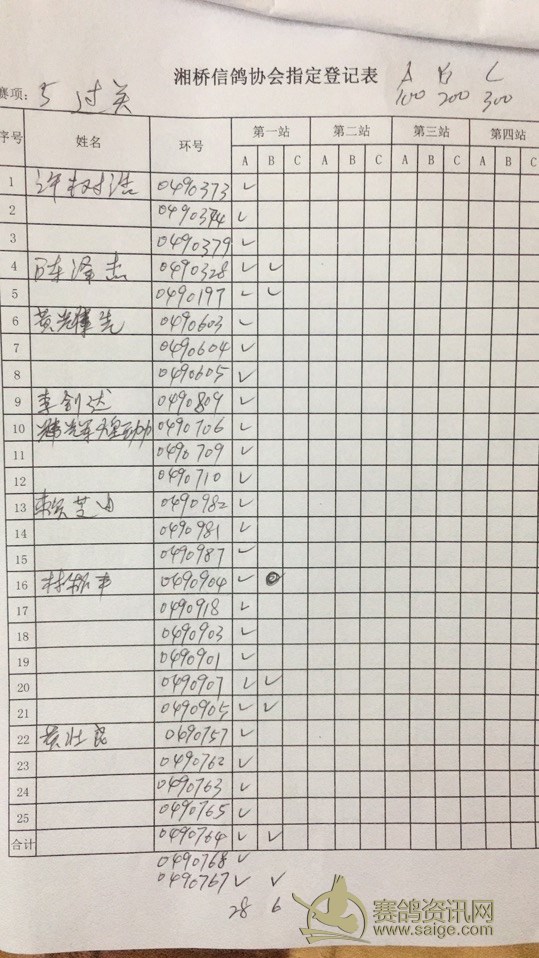 湘桥信鸽协会指定登记表 A B C
赛项: 5 过关 100 200 300
序号 姓名 环号 第一站 第二站 第三站 第四站
A B C A B C A B C A B C
1 许树浩 0490373 ✓
2 0490374 ✓
3 0490379 ✓
4 陈泽杰 0490328 ✓ ✓
5 0490197 ✓ ✓
6 黄光辉先 0490603 ✓
7 0490604 ✓
8 0490605 ✓
9 李剑达 0490809 ✓
10 0490706 ✓
11 0490709 ✓
12 0490710 ✓
13 赖芝由 0490982 ✓
14 0490981 ✓
15 0490987 ✓
16 0490904 ✓
17 0490918 ✓
18 0490903 ✓
19 0490901 ✓
20 0490907 ✓ ✓
21 0490905 ✓ ✓
22 0490757 ✓
23 0490762 ✓
24 0490763 ✓
25 0490765 ✓
合计 0490764 ✓ ✓
0490768 ✓
0490767 ✓ ✓
28 6
赛鸽资讯网
www.saige.com